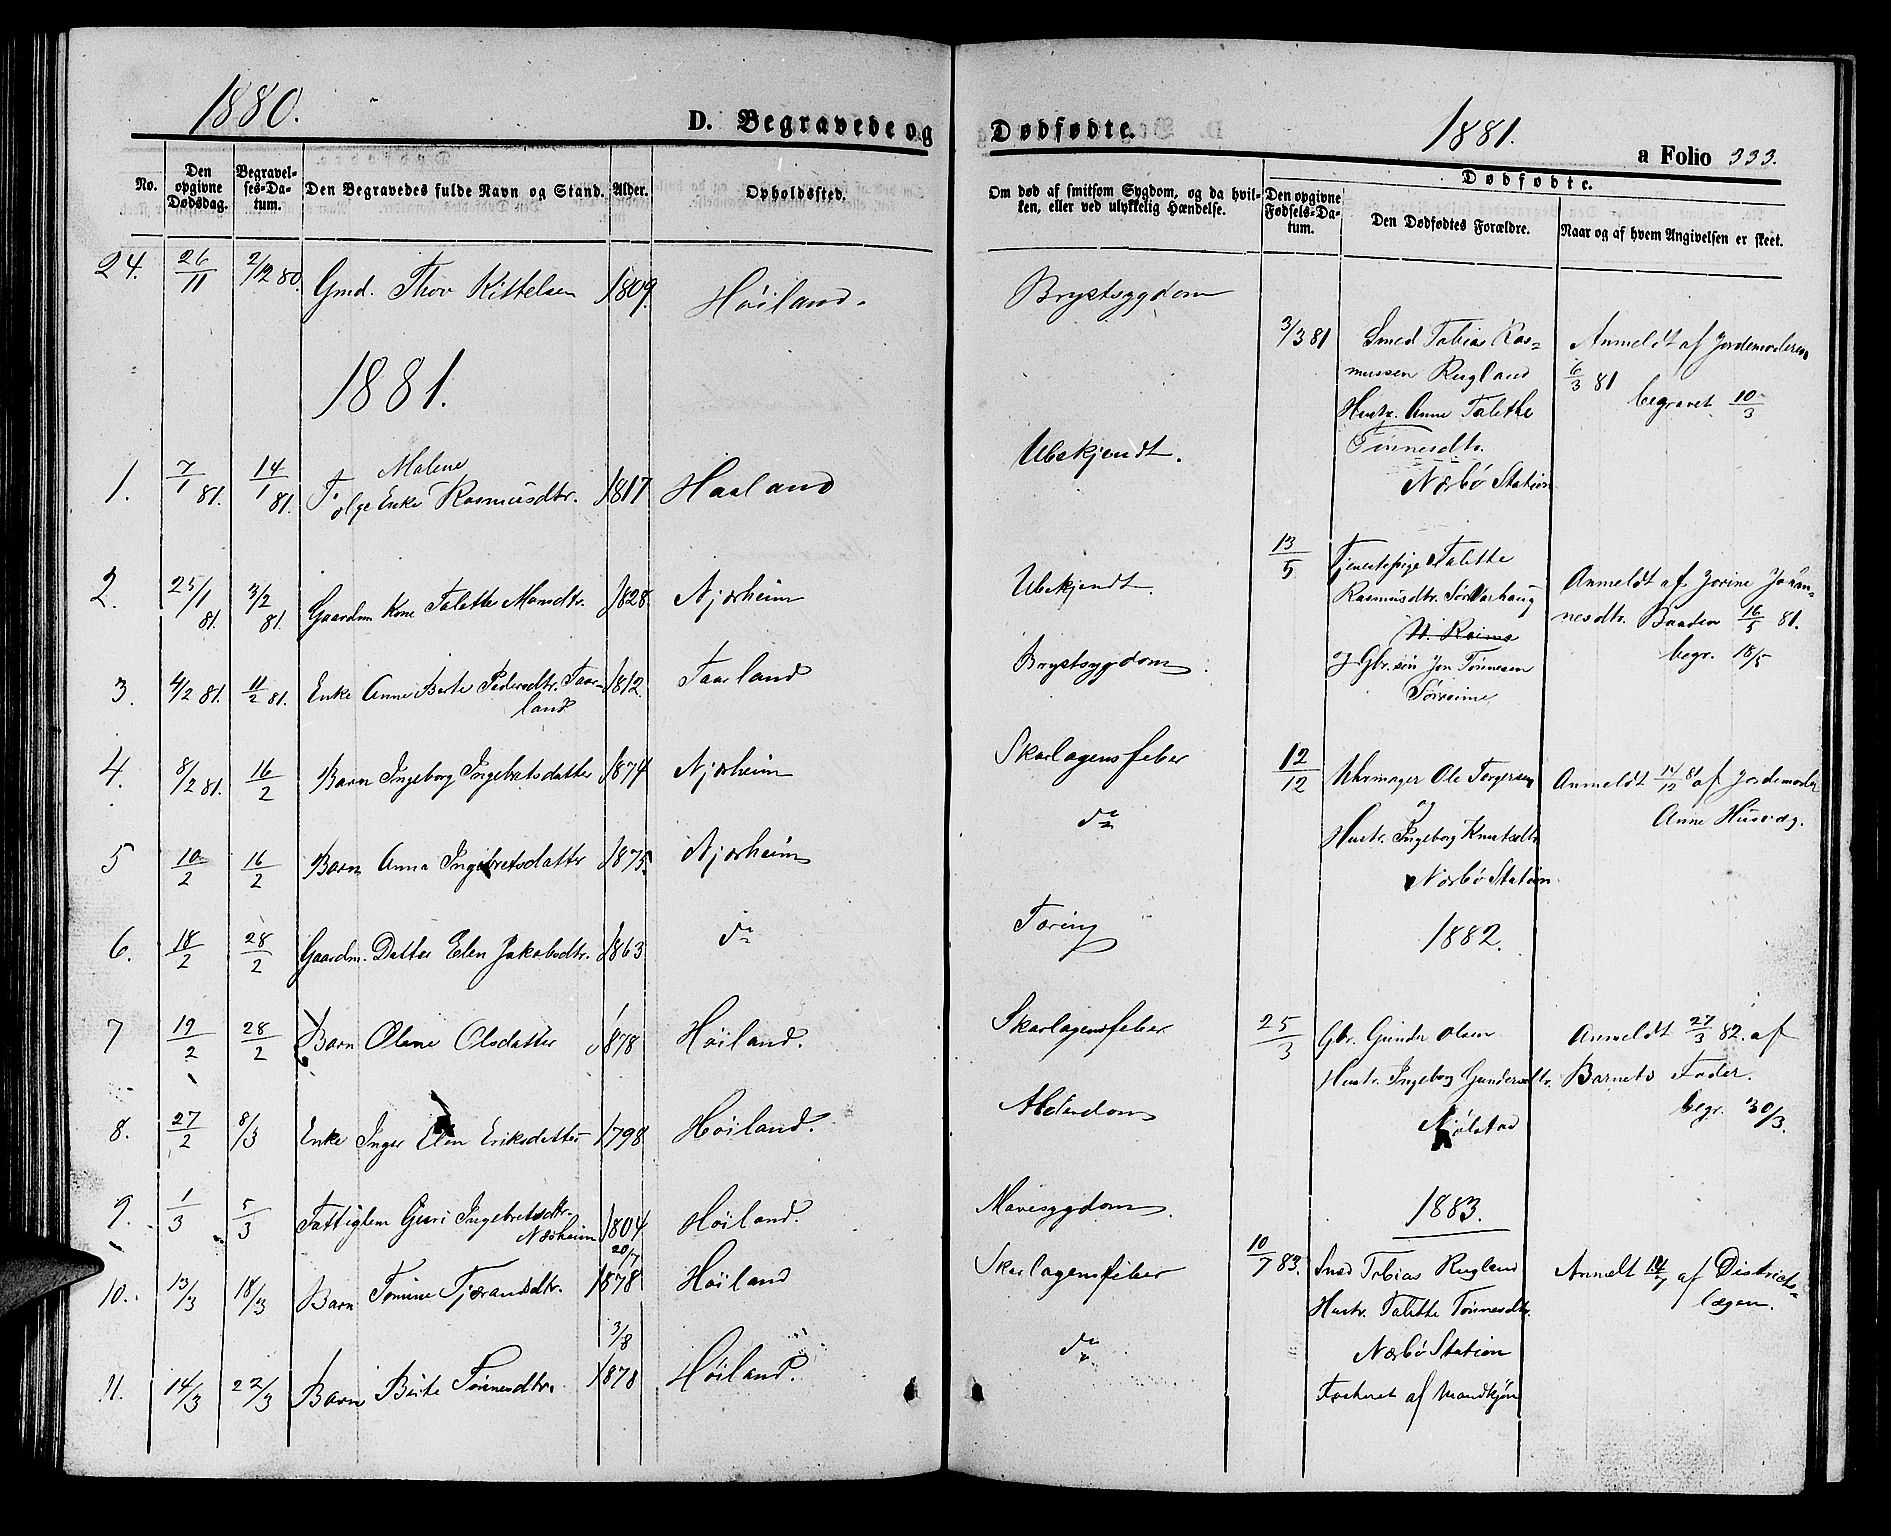 1880.
D. Begravede og Dødfødte.
1881.
a Folio 333.
Dødfødte.
No.
Den opgivne Dødsdag.
Begravelses-Datum.
Den Begravedes fulde Navn og Stand.
Alder.
Opholdssted.
Om død af smitsom Sygdom, og da hvilken, eller ved ulykkelig Hændelse.
Den opgivne Fødsels-Datum.
Den Dødfødtes Forældre.
Naar og af hvem Angivelsen er skeet.
24. 26/11 2/12 80. Gmd. Thor Kittelsen 1809. Höiland. Brystsygdom
1881.
1. 7/1 81. 14/1 81. Malene
Enke Rasmusdtr. 1817 Haaland Ubekjendt.
2. 25/1 81. 3/2 81. Gaardm. Kone Talette Mansdtr. 1828 Njærheim Ubekjendt.
3. 4/2 81. 11/2 81. Enke Anne Berte Pedersdtr. Taarland 1812. Taarland Brystsygdom.
4. 8/2 81. 16/2 Barn Ingeborg Ingebretsdatter 1874 Njærheim Skarlagensfeber
5 10/2 16/2 Barn Anna Ingebretsdatter 1875. Njærheim do
6. 18/2 28/2 Gaardm. Datter Elen Jakobsdtr. 1863 do Tæring
7 19/2 28/2 Barn Olene Olsdatter 1878 Höiland. Skarlagensfeber
8. 27/2 8/3 Enke Inger Elen Eriksdatter 1798 Höiland. Alderdom
9. 1/3 5/3 Fattiglem Guri Ingebretsdtr. Nærheim 1804 Höiland. Mavesygdom.
10. 13/3 18/3 Barn Tomine Tjærandsdtr. 20/7 1878 Höiland Skarlagensfeber
11. 14/3 22/3 Barn Berte Tønnesdtr. 3/8 1878 Höiland. do
3/3 81 Smed Tobias Rasmussen Rugland
Hustr. Anne Talethe
Tönnesdtr.
Nærbö Station
Anmeldt af Jordemoderen
6/3 81
begravet 10/3
13/5 Tjenestepige Talette
Rasmusdtr. Sör Varhaug
N. Reime
og Gbr. sön Jon Tönnesen
Sörreime
Anmeldt af Jorine Johannesdtr. 16/5 81.
begr. 18/5
12/12 Uhrmager Ole Torgersen
og
Hustr. Ingeborg Knutsdtr.
Nærbö Station
Anmeldt 14/12 81 af Jordemoder
Anne Husvæg.
1882.
25/3 Gbr. Gunder Olsen
Hustr. Ingeborg Gundersdtr.
Njölstad
Anmeldt 27/3 82. af
Barnets Fader.
begr. 30/3.
1883.
10/7 83. Smed Tobias Rugland
Hustr. Talette Tönnesdtr.
Nærbö Station
Fosteret af Mandkjön
Anmelt 14/7 af Districtslægen.